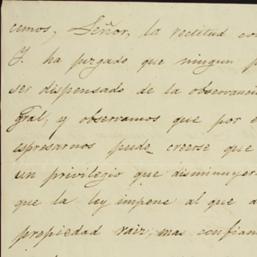 cemos, Señor, la rectitud con
I. ha juzgado que ningun p
ser dispensado de la observanci
Gral, y observamos que por e
espresarnos pude creerse que
un privilegio que disminuyer
que la ley impone al que a
propiedad raiz, mas confian